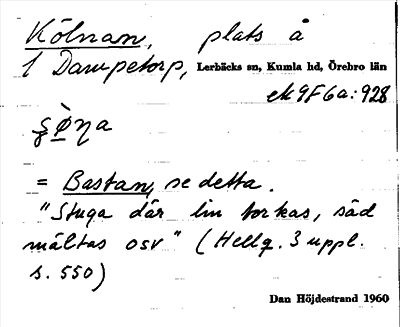 Kölnan, plats å
1 Dampetorp, Lerbäcks sn, Kumla hd, Örebro län
ek 9F6a:928
= Bastan, se detta.
"Stuga där lin torkas, säd
mältas osv" (Hellq. 3 uppl.
s. 550)
Dan Höjdestrand 1960